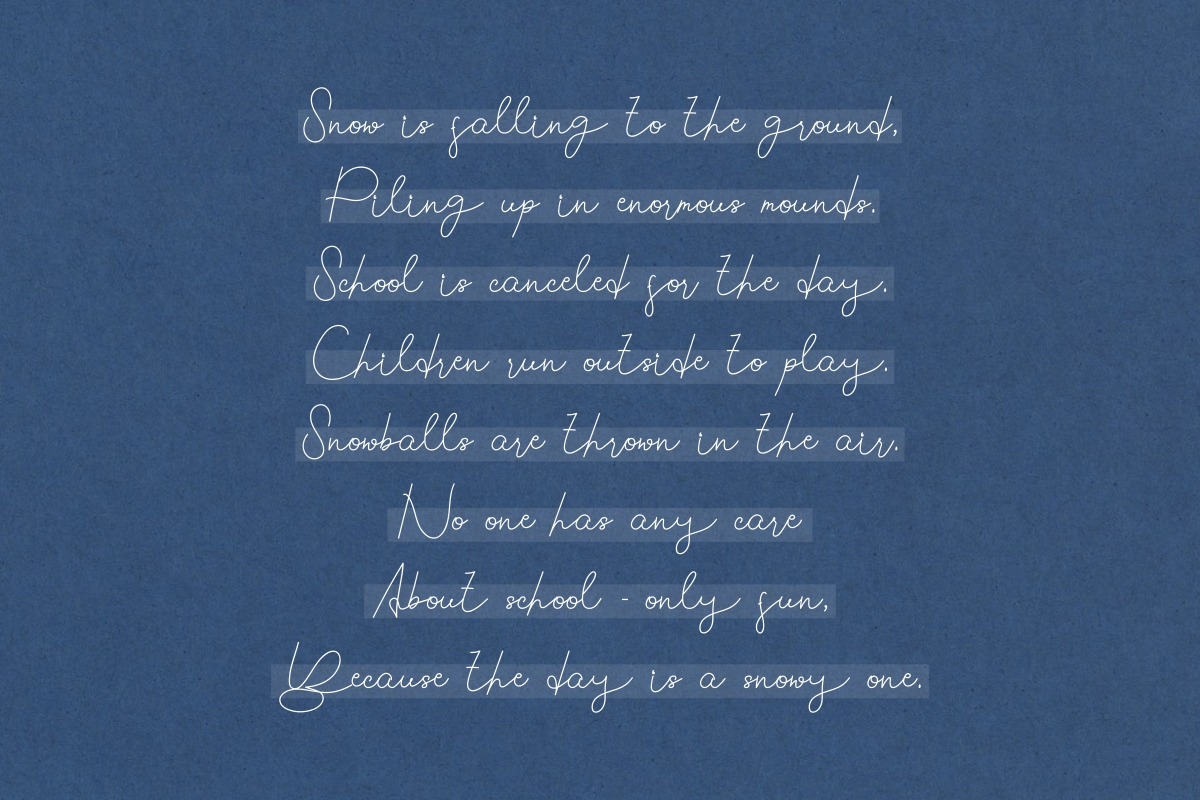 Snow is falling to the ground,
Piling up in enormous mounds.
School is canceled for the day.
Children run outside to play.
Snowballs are thrown in the air.
No one has any care
About school - only fun,
Because the day is a snowy one.